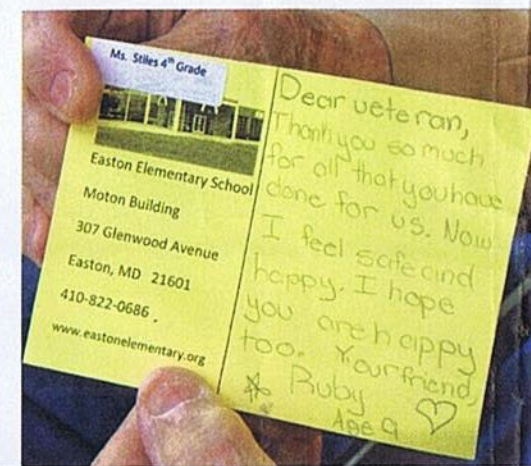 Ms. Stiles 4th Grade
Easton Elementary School
Moton Building
307 Glenwood Avenue
Easton, MD 21601
410-822-0686 .
www.eastonelementary.org
Dear veteran,
Thank you so much
for all that you have
done for us. Now
I feel safe and
happy. I hope
you are happy
too. Your friend,
Ruby
Age 9